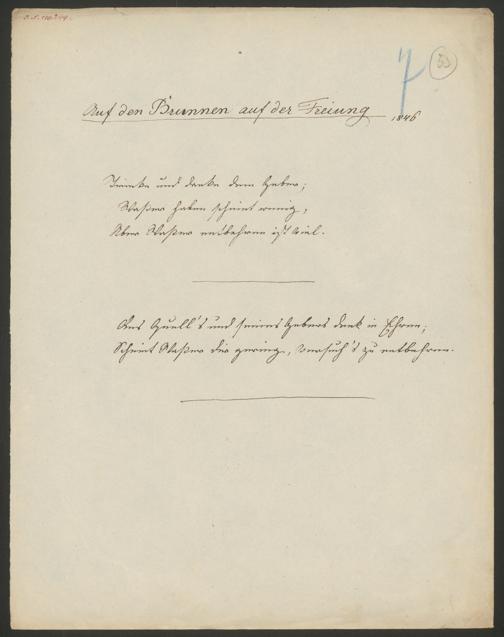 7
33
Auf den Brunnen auf der Freiung 1846
Trinke und danke dem Geber;
Waßer haben scheint wenig,
Aber Waßer entbehren ist viel.
Des Quell's und seines Gebers denk in Ehren;
Scheint Waßer dir gering, versuch's zu entbehren.